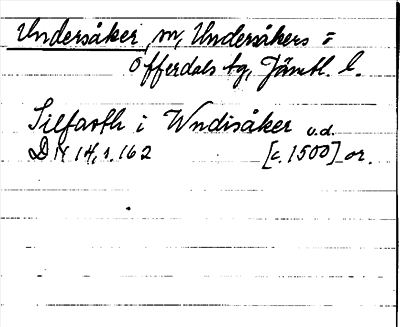 Undersåker, sn, Undersåkers o
Offerdals tg, Jämtl. l.
Silfasth i Wndisåker u.d.
DN 14, s. 162 [c. 1500] or.